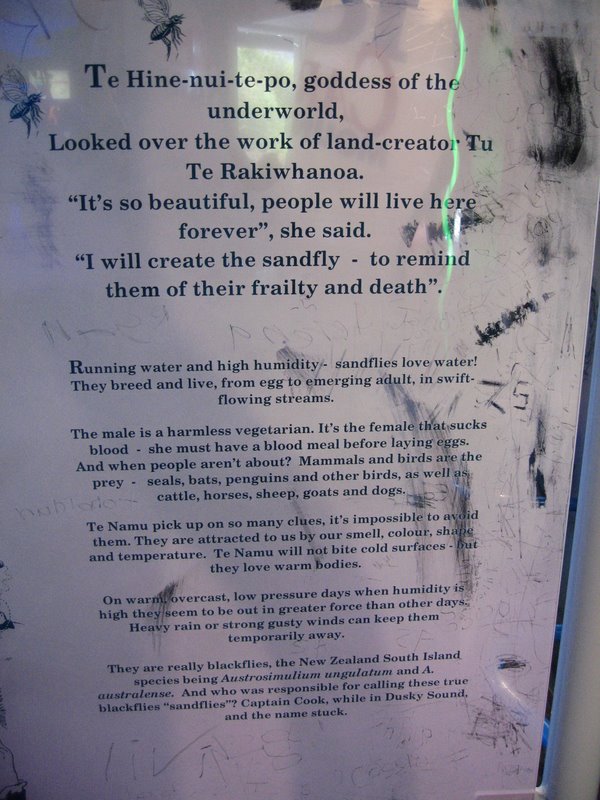 Te Hine-nui-te-po, goddess of the
underworld,
Looked over the work of land-creator Tu
Te Rakiwhanoa.
“It’s so beautiful, people will live here
forever”, she said.
“I will create the sandfly - to remind
them of their frailty and death”.
Running water and high humidity - sandflies love water!
They breed and live, from egg to emerging adult, in swift-
flowing streams.
The male is a harmless vegetarian. It’s the female that sucks
blood - she must have a blood meal before laying eggs.
And when people aren’t about? Mammals and birds are the
prey - seals, bats, penguins and other birds, as well as
cattle, horses, sheep, goats and dogs.
Te Namu pick up on so many clues, it’s impossible to avoid
them. They are attracted to us by our smell, colour, shape
and temperature. Te Namu will not bite cold surfaces - but
they love warm bodies.
On warm, overcast, low pressure days when humidity is
high they seem to be out in greater force than other days.
Heavy rain or strong gusty winds can keep them
temporarily away.
They are really blackflies, the New Zealand South Island
species being Austrosimulium ungulatum and A.
australense. And who was responsible for calling these true
blackflies “sandflies”? Captain Cook, while in Dusky Sound,
and the name stuck.